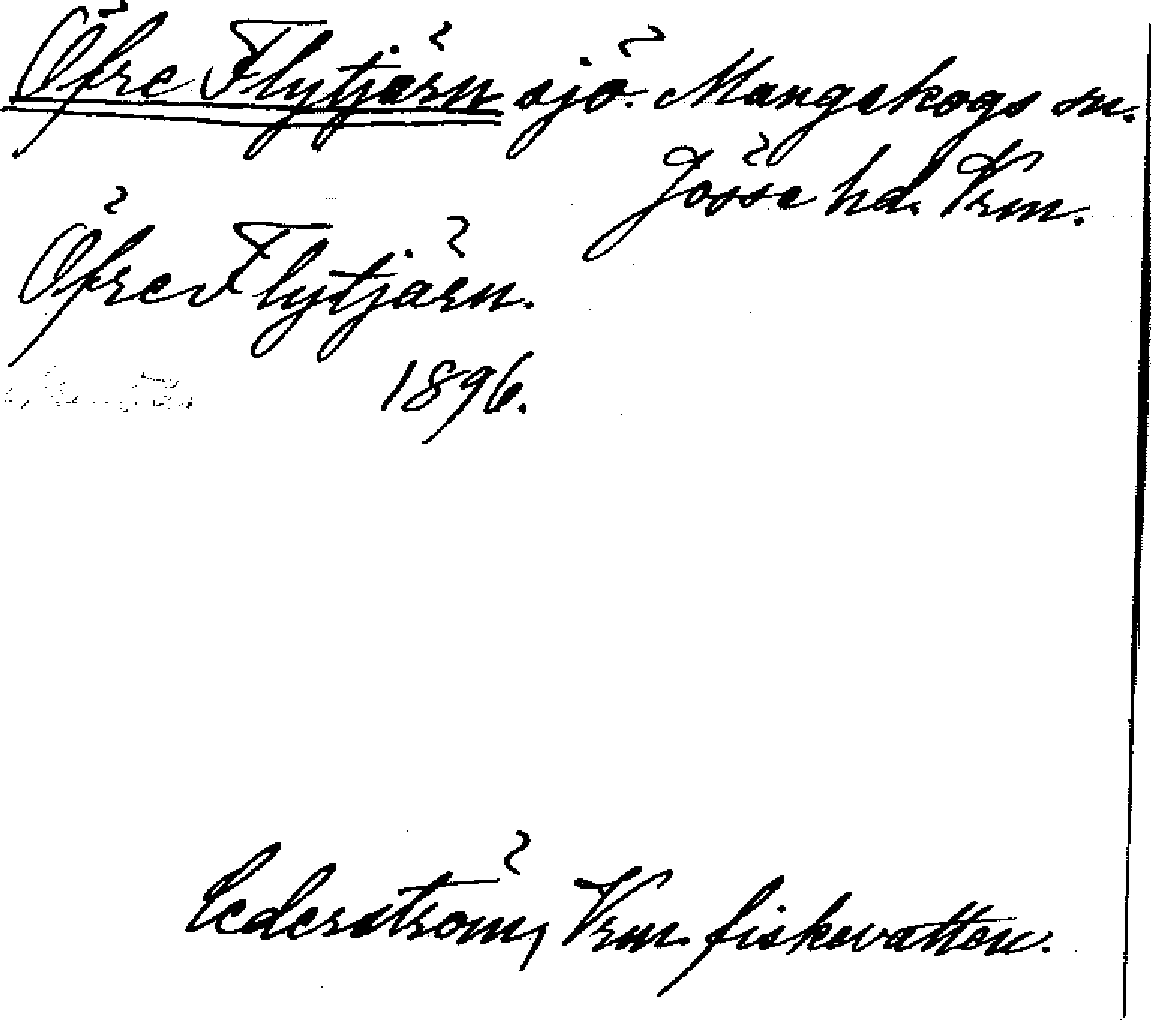 Öfre Flytjärn sjö. Mangskogs sn.
Jösse hd. Vrm.
Öfre Flytjärn.
1896.
Cederström, Vrm. fiskevatten.